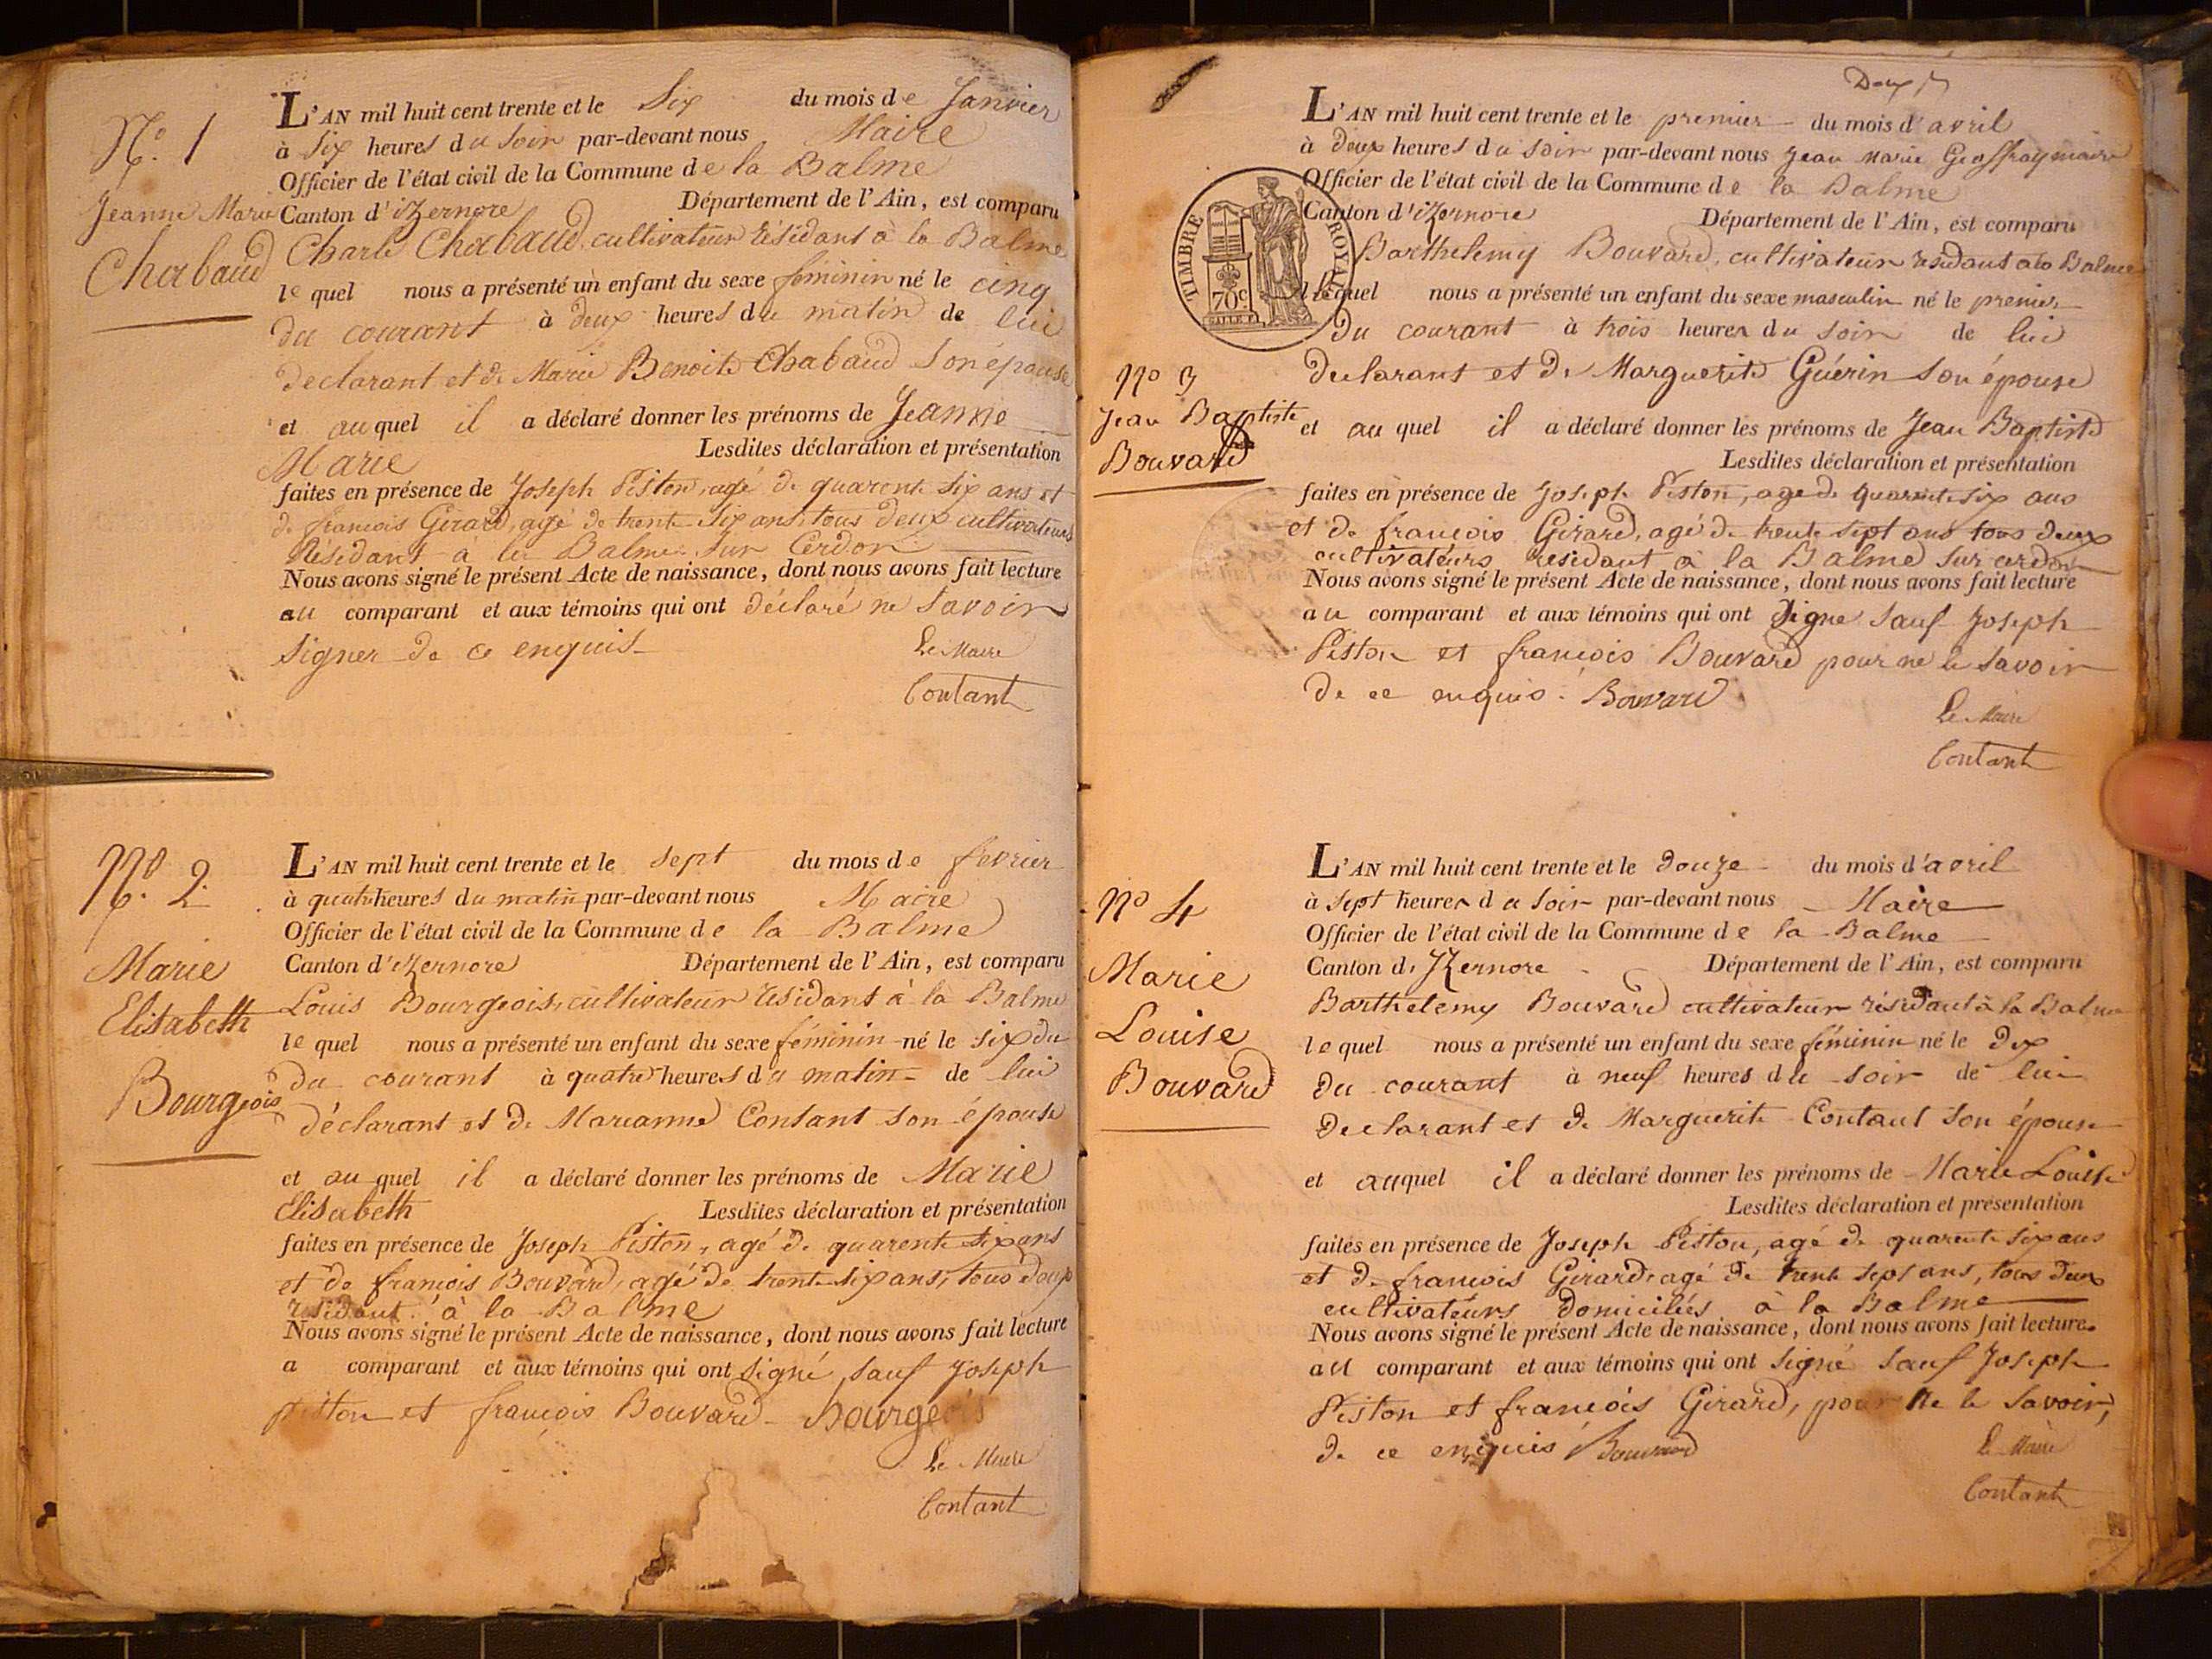 N.º 1
Jeanne Marie
Chabaud
L'AN mil huit cent trente et le Six du mois de Janvier
à Six heures du Soir par-devant nous Maire
Officier de l'état civil de la Commune de la Balme
Canton d'iZernore Département de l'Ain, est comparu
Charle Chabaud, cultivateur résidant à la Balme
lequel nous a présenté un enfant du sexe féminin né le cinq
du courant à deux heures du matin de lui
declarant et de Marie Benoite Chabaud Son épouse
et auquel il a déclaré donner les prénoms de Jeanne
Marie Lesdites déclaration et présentation
faites en présence de Joseph Piston, agé de quarente Six ans et
de francois Girard, agé de trente Six ans, tous deux cultivateurs
Résidant a la Balme Sur Cerdon
Nous avons signé le présent Acte de naissance, dont nous avons fait lecture
au comparant et aux témoins qui ont déclaré ne Savoir
Signer de ce enquis
Le Maire
Contant
Nº. 2.
Marie
Elisabeth
Bourgeois
L'AN mil huit cent trente et le Sept du mois de fevrier
à quatre heures du matin par-devant nous Maire
Officier de l'état civil de la Commune de la Balme
Canton d'iZernore Département de l'Ain, est comparu
Louis Bourgeois, cultivateur résidant à la Balme
lequel nous a présenté un enfant du sexe féminin né le Six du
du courant à quatre heures du matin de lui
déclarant et de Marianne Contant son épouse
et au quel il a déclaré donner les prénoms de Marie
Elisabeth Lesdites déclaration et présentation
faites en présence de Joseph Piston, agé de quarente Six ans
et de francois Bouvard, agé de trente Six ans, tous deux
résidant à la Balme
Nous avons signé le présent Acte de naissance, dont nous avons fait lecture
a comparant et aux témoins qui ont Signé, Sauf Joseph
piston et françois Bouvard Bourgeois
Le Maire
Contant
Deux
TIMBRE ROYAL
70c
Nº 3
Jean Baptiste
Bouvard
L'AN mil huit cent trente et le premier du mois d'avril
à deux heures du Soir par-devant nous Jean Marie Geoffray maire
Officier de l'état civil de la Commune de la Balme
Canton d'iZernore Département de l'Ain, est comparu
Barthelemy Bouvard, cultivateur résidant à la Balme
lequel nous a présenté un enfant du sexe masculin né le premier
du courant à trois heures du Soir de lui
declarant et de Marguerite Guérin Son épouse
et au quel il a déclaré donner les prénoms de Jean Baptiste
Lesdites déclaration et présentation
faites en présence de Joseph Piston, agé de quarente six ans
et de françois Girard, agé de trente sept ans tous deux
cultivateurs résidant à la Balme Sur cerdon
Nous avons signé le présent Acte de naissance, dont nous avons fait lecture
au comparant et aux témoins qui ont Signé Sauf Joseph
Piston et françois Bouvard pour ne le Savoir
de ce enquis. Bouvard
Le Maire
Contant
Nº 4
Marie
Louise
Bouvard
L'AN mil huit cent trente et le douze du mois d'avril
à Sept heures du Soir par-devant nous Maire
Officier de l'état civil de la Commune de la Balme
Canton d'iZernore Département de l'Ain, est comparu
Barthelemy Bouvard cultivateur résidant à la Balme
lequel nous a présenté un enfant du sexe féminin né le dix
du courant à neuf heures du soir de lui
declarant et de Marguerite Contant Son épouse
et auquel il a déclaré donner les prénoms de Marie Louise
Lesdites déclaration et présentation
faites en présence de Joseph Piston, agé de quarente six ans
et de françois Girard, agé de trente sept ans, tous deux
cultivateurs domiciliés à la Balme
Nous avons signé le présent Acte de naissance, dont nous avons fait lecture
au comparant et aux témoins qui ont Signé Sauf Joseph
Piston et françois Girard, pour ne le Savoir,
de ce enquis Bouvard
Le Maire
Contant